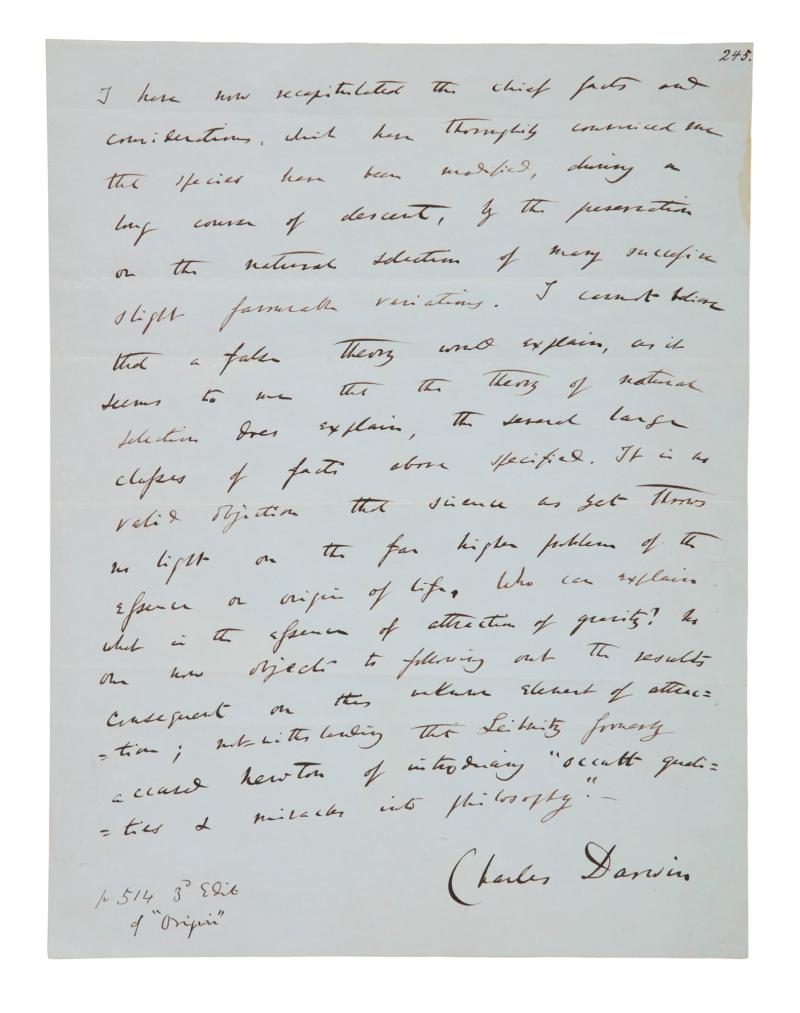 245.
I have now recapitulated the chief facts and
considerations, which have thoroughly convinced me
that species have been modified, during a
long course of descent, by the preservation
or the natural selection of many successive
slight favourable variations. I cannot believe
that a false theory would explain, as it
seems to me that the theory of natural
selection does explain, the several large
classes of facts above specified. It is no
valid objection that science as yet throws
no light on the far higher problem of the
essence or origin of life. Who can explain
what is the essence of attraction of gravity? No
one now objects to following out the results
consequent on this unknown element of attrac=
=tion; notwithstanding that Leibnitz formerly
accused Newton of introducing "occult quali=
=ties & miracles into philosophy".—
Charles Darwin
p 514 3d Edit
of "Origin"